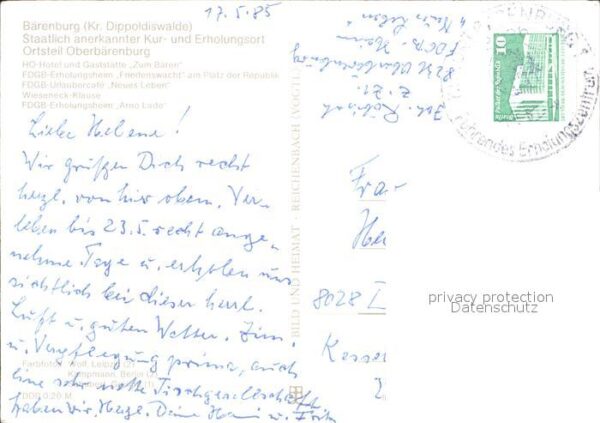 17.5.85
Bärenburg (Kr. Dippoldiswalde)
Staatlich anerkannter Kur- und Erholungsort
Ortsteil Oberbärenburg
HO-Hotel und Gaststätte „Zum Bären"
FDGB-Erholungsheim „Friedenswacht" am Platz der Republik
FDGB-Urlaubercafé „Neues Leben"
Wieseneck-Klause
FDGB-Erholungsheim „Arno Lade"
Liebe Helene!
Wir grüßen Dich recht
herzl. von hier oben. Ver-
leben bis 23.5. recht ange-
nehme Tage u. erholen uns
sichtlich bei dieser herrl.
Luft u. guten Wetter. Zim.
u. Verpflegung prima, auch
eine sehr nette Tischgesellschaft
haben wir. Herzl. Deine u. Fritz
Farbfotos: Wolf, Leipzig (2)
Kampmann, Berlin (2)
DDR 0,20 M
BILD UND HEIMAT REICHENBACH (VOGTL)
z. Zt.
8231 Oberbärenburg
FDGB-Heim
„Neues Leben"
10
Fra
He
8028
privacy protection
Datenschutz